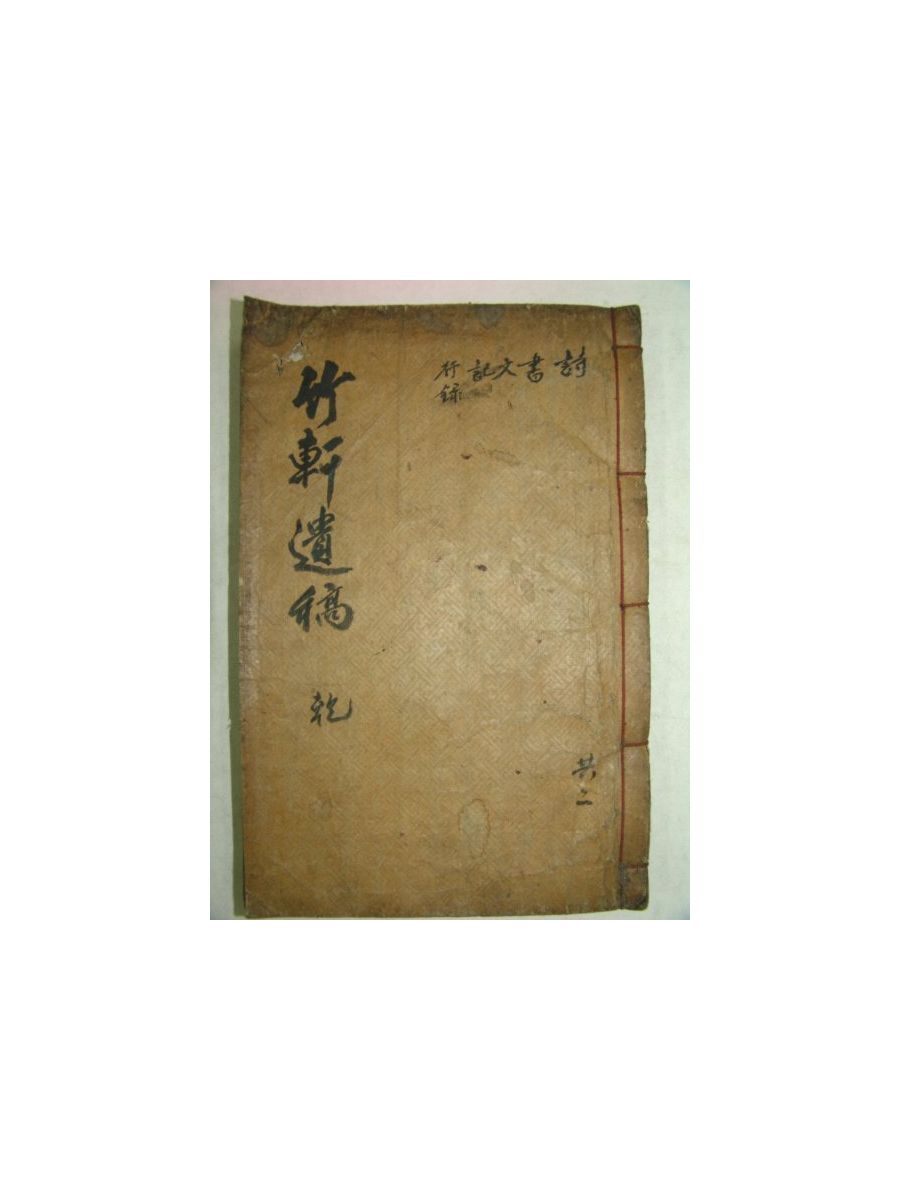 詩
書
文
記
行錄
共二
竹軒遺稿 乾